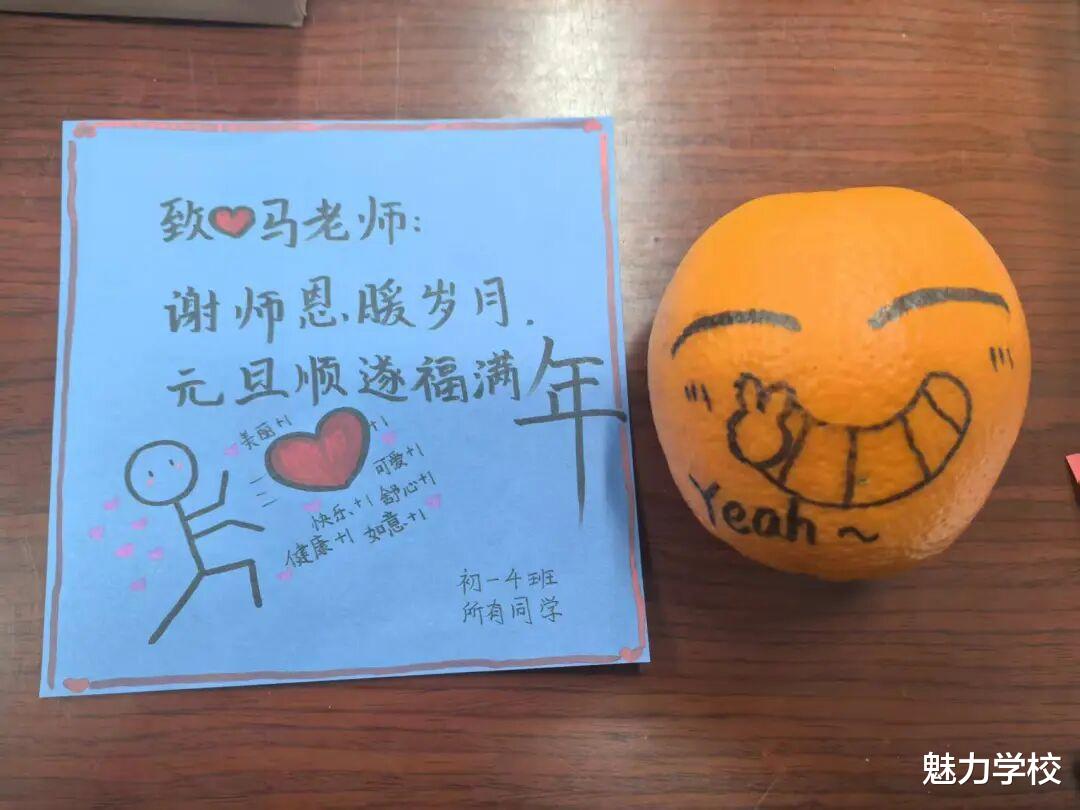 致❤马老师:
谢师恩暖岁月.
元旦顺遂福满年
美丽+1
+1
可爱+1
快乐+1 舒心+1
健康+1 如意+1
初一4班
所有同学
Yeah~
魅力学校